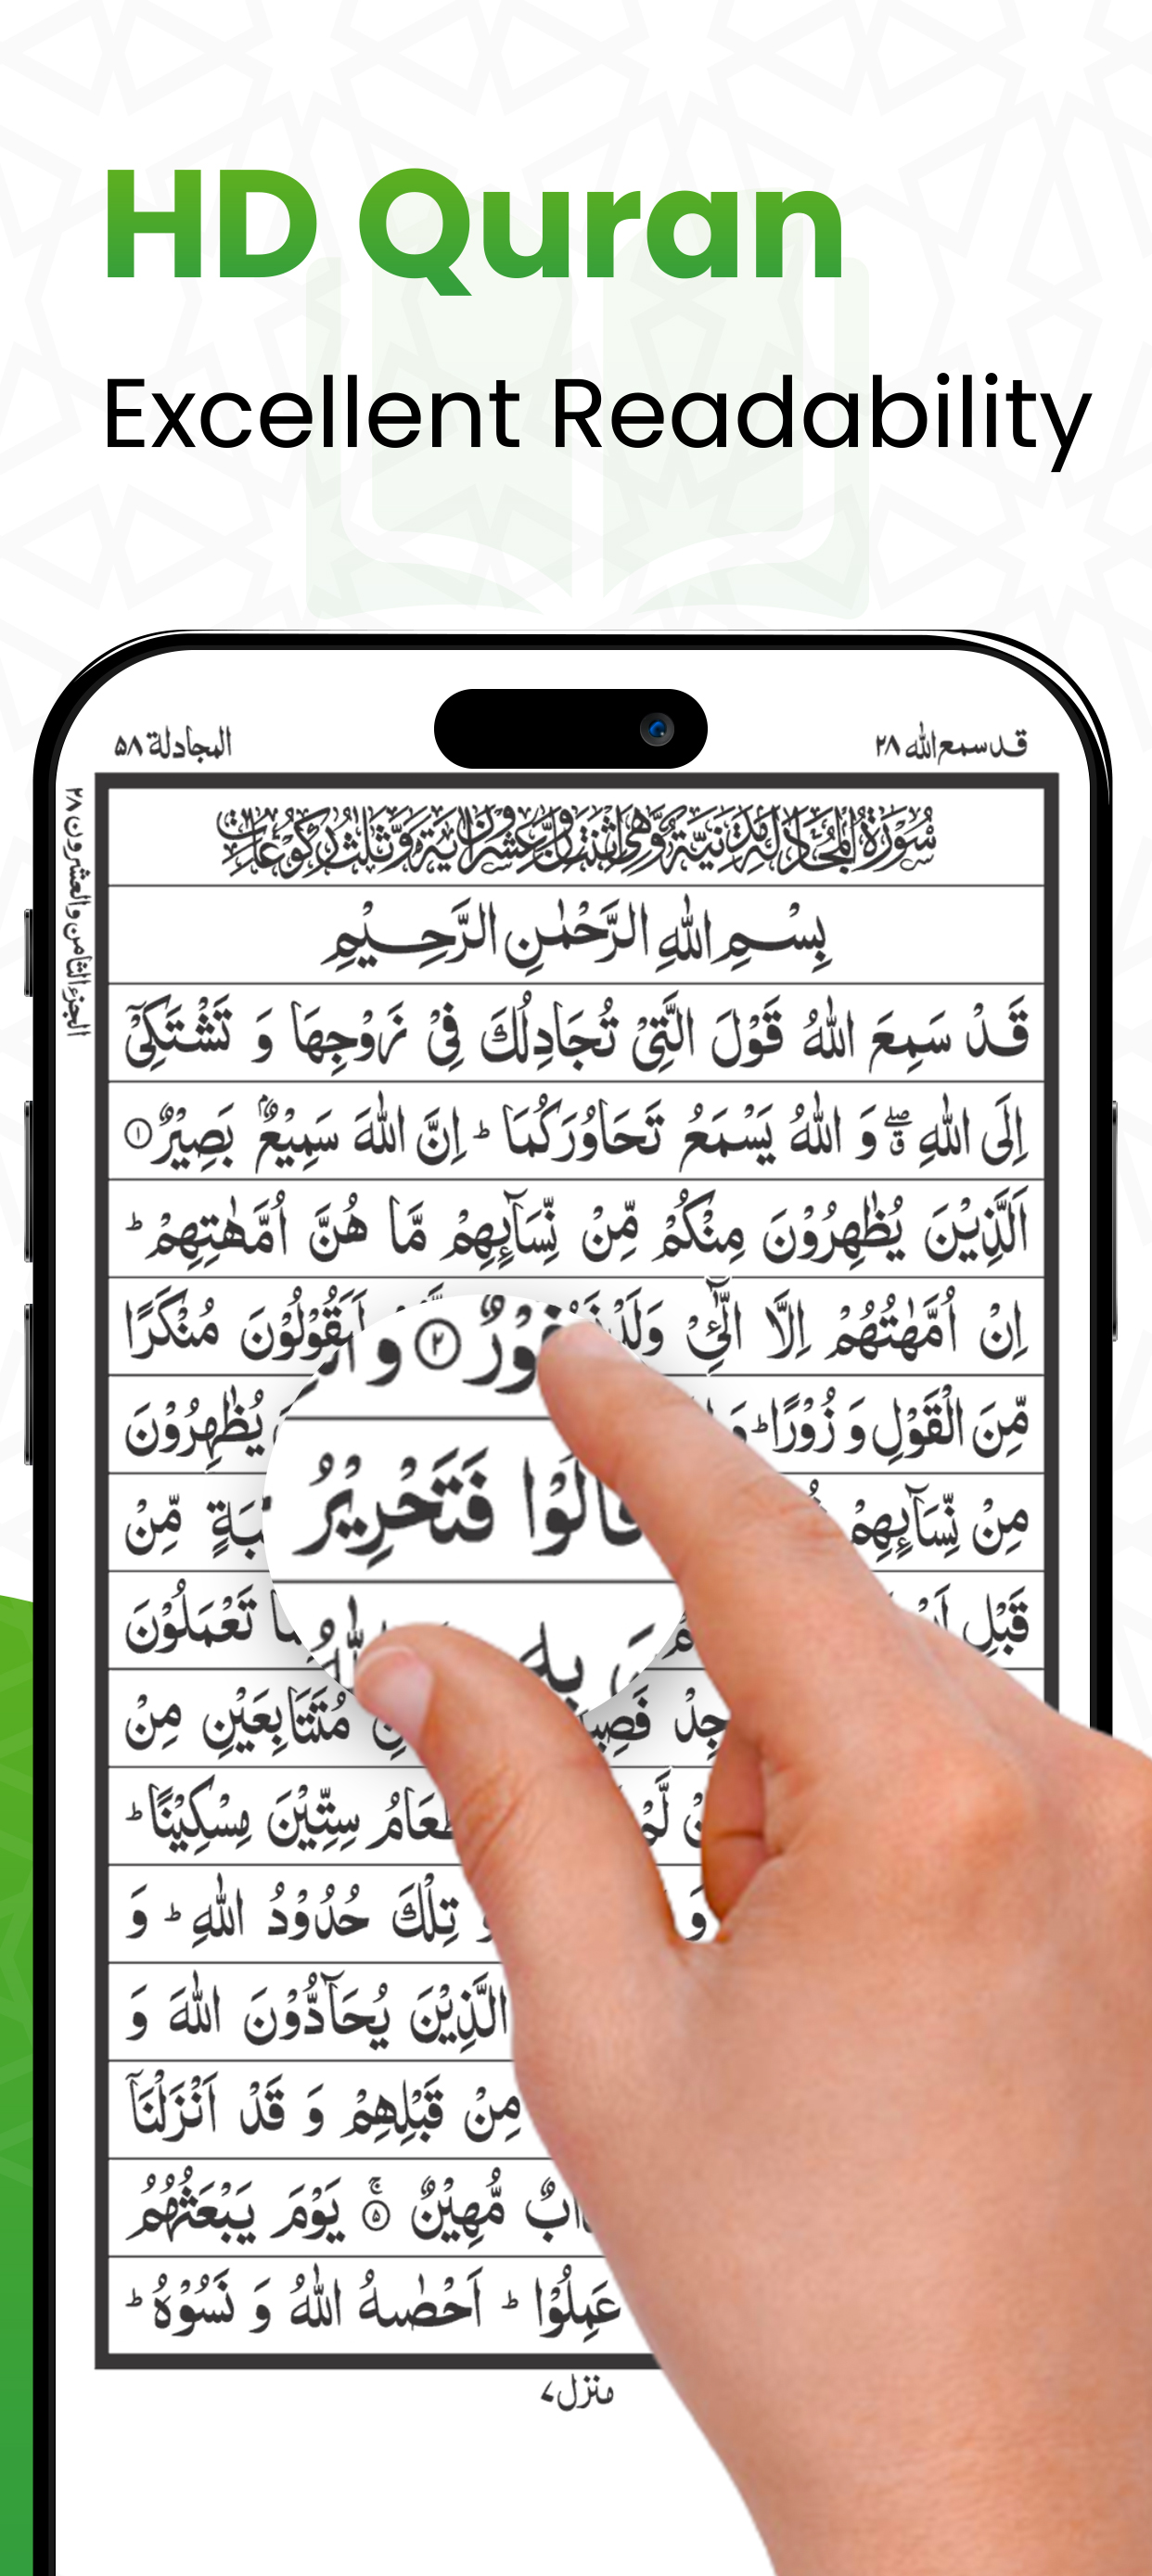 HD Quran
Excellent Readability
المجادلة ۵۸
قد سمع الله ۲۸
الجزء الثامن والعشرون ۲۸
سُوْرَةُ الْمُجَادَلَةِ مَدَنِيَّةٌ وَّهِيَ اثْنَتَانِ وَّعِشْرُوْنَ اٰيَةً وَّثَلٰثُ رُكُوْعَاتٍ
بِسْمِ اللّٰهِ الرَّحْمٰنِ الرَّحِيْمِ
قَدْ سَمِعَ اللّٰهُ قَوْلَ الَّتِيْ تُجَادِلُكَ فِيْ زَوْجِهَا وَ تَشْتَكِيْۤ
اِلَى اللّٰهِ ۖۗ وَ اللّٰهُ يَسْمَعُ تَحَاوُرَكُمَا ؕ اِنَّ اللّٰهَ سَمِيْعٌۢ بَصِيْرٌ ۱
اَلَّذِيْنَ يُظٰهِرُوْنَ مِنْكُمْ مِّنْ نِّسَآئِهِمْ مَّا هُنَّ اُمَّهٰتِهِمْ ؕ
اِنْ اُمَّهٰتُهُمْ اِلَّا الّٰٓـِٔيْ لَيَقُوْلُوْنَ مُنْكَرًا
فُوْرٌ ۲ و
مِّنَ الْقَوْلِ وَ زُوْرًا ؕ يُظٰهِرُوْنَ
مِنْ نِّسَآئِهِمْ قَالُوْا فَتَحْرِيْرُ مِّنْ
قَبْلِ بِهٖ تَعْمَلُوْنَ
مُتَتَابِعَيْنِ مِنْ
لَّمْ سِتِّيْنَ مِسْكِيْنًا ؕ
وَ تِلْكَ حُدُوْدُ اللّٰهِ ؕ وَ
الَّذِيْنَ يُحَآدُّوْنَ اللّٰهَ وَ
مِنْ قَبْلِهِمْ وَ قَدْ اَنْزَلْنَاۤ
مُّهِيْنٌ ۵ۚ يَوْمَ يَبْعَثُهُمُ
عَمِلُوْا ؕ اَحْصٰىهُ اللّٰهُ وَ نَسُوْهُ ؕ
منزل ۷